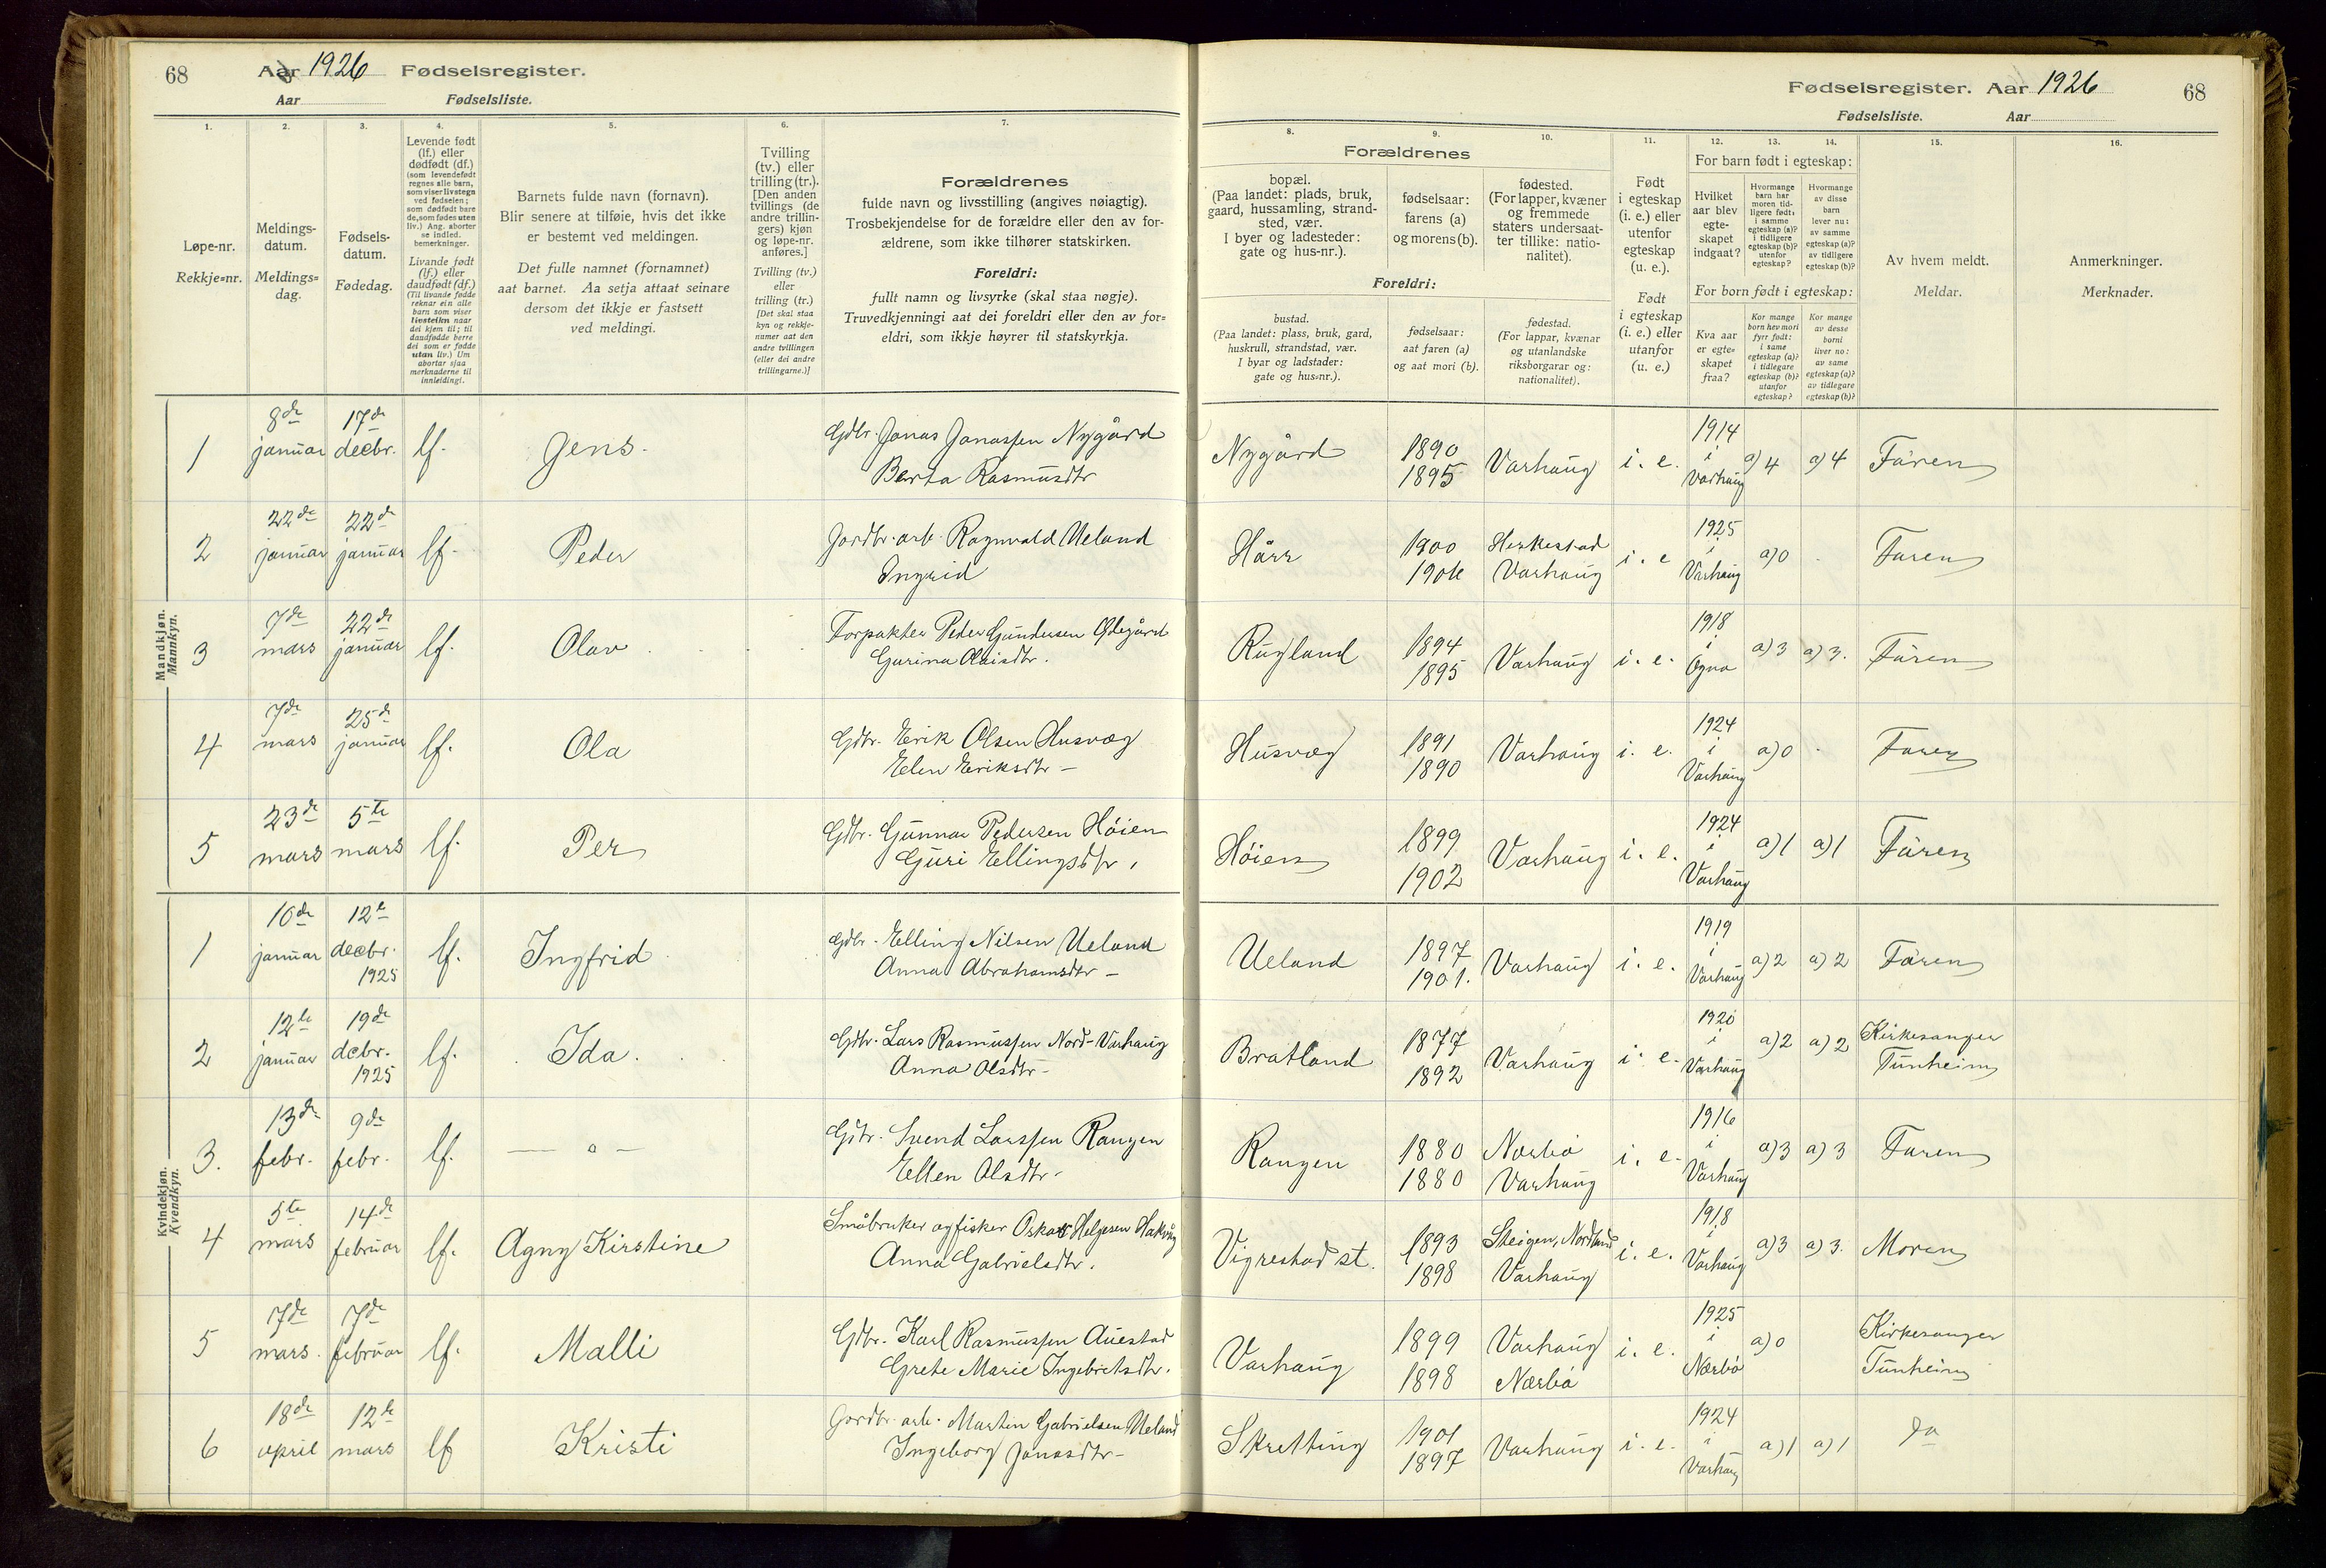 68 Aar 1926 Fødselsregister.
Aar Fødselsliste.
1.
2.
3.
4.
5.
6.
7.
Løpe-nr.
Rekkje=nr.
Meldings-
datum.
Meldings=
dag.
Fødsels-
datum.
Fødedag.
Levende født
(lf.) eller
dødfødt (df.)
(som levendefødt
regnes alle barn,
som viser livstegn
ved fødselen;
som dødfødt bare
de, som fødes uten
liv.) Ang. aborter
se indled.
bemerkninger.
Livande født
(lf.) eller
daudfødt (df.)
(Til livande fødde
reknar ein alle
barn som viser
livsteikn naar
dei kjem til; til
daudfødde berre
dei som er fødde
utan liv.) Um
abortar sjaa
merknaderne til
innleidingi.
Barnets fulde navn (fornavn).
Blir senere at tilføie, hvis det ikke
er bestemt ved meldingen.
Det fulle namnet (fornamnet)
aat barnet. Aa setja attaat seinare
dersom det ikkje er fastsett
ved meldingi.
Tvilling
(tv.) eller
trilling (tr.).
[Den anden
tvillings (de
andre trillin-
gers) kjøn
og løpe-nr.
anføres.]
Tvilling (tv.)
eller
trilling (tr.)
[Det skal staa
kyn og rekkje-
numer aat den
andre tvillingen
(eller dei andre
trillingarne.)]
Forældrenes
fulde navn og livsstilling (angives nøiagtig).
Trosbekjendelse for de forældre eller den av for-
ældrene, som ikke tilhører statskirken.
Foreldri:
fullt namn og livsyrke (skal staa nøgje).
Truvedkjenningi aat dei foreldri eller den av for=
eldri, som ikkje høyrer til statskyrkja.
Fødselsregister. Aar 1926 68
Fødselsliste. Aar
8.
9.
10.
11.
12.
13.
14.
15.
16.
Forældrenes
bopæl.
(Paa landet: plads, bruk,
gaard, hussamling, strand-
sted, vær.
I byer og ladesteder:
gate og hus-nr.).
fødselsaar:
farens (a)
og morens (b).
fødested.
(For lapper, kvæner
og fremmede
staters undersaat-
ter tillike: natio-
nalitet).
Foreldri:
bustad.
(Paa landet: plass, bruk, gard,
huskrull, strandstad, vær.
I byar og ladstader:
gate og hus=nr.).
fødselsaar:
aat faren (a)
og aat mori (b).
fødestad.
(For lappar, kvænar
og utanlandske
riksborgarar og:
nationalitet).
Født
i egteskap
(i. e.) eller
utenfor
egteskap
(u. e.).
Født
i egteskap
(i. e.) eller
utanfor
(u. e.)
For barn født i egteskap:
Hvilket
aar blev
egte-
skapet
indgaat?
Hvormange
barn har
moren tid-
ligere født:
i samme
egteskap (a)?
i tidligere
egteskap (b)?
utenfor
egteskap?
Hvormange
av disse
barn
lever nu:
av samme
egteskap (a)?
av tidligere
egteskap (b)?
For born født i egteskap:
Kva aar
er egte=
skapet
fraa?
Kor mange
born hev mori
fyrr født:
i same
egteskap (a)?
i tidlegare
egteskap (b)?
utanfor
egteskap?
Kor mange
av desse
borni
liver no:
av same
egteskap (a)?
av tidlegare
egteskap (b)?
Av hvem meldt.
Meldar.
Anmerkninger.
Merknader.
Mandkjøn.
Mannkyn.
1 8de januar 17de decbr. lf. Jens. Gdbr. Jonas Jonassen Nygård
Berta Rasmusdtr
Nygård 1890 1895 Varhaug i. e. 1914 i Varhaug a) 4 a) 4 Faren
2 22de januar 22de januar lf. Peder Jordbr. arb. Ragnvald Ueland
Ingrid
Hårr 1900 1906 Varhaug i. e 1925 i Varhaug a) 0 Faren
3 7de mars 22de januar lf. Olav Forpakter Peder Gundersen Ødegård
Gurina Olaisdtr.
Rugland 1894 1895 Varhaug i. e. 1918 i Ogna a) 3 a) 3. Faren
4 7de mars 25de januar lf. Ola Gdbr. Erik Olsen Husvæg
Elen Eriksdtr –
Husvæg 1891 1890 Varhaug i. e. 1924 i Varhaug a) 0 Faren
5 23de mars 5te mars lf. Per Gdbr. Gunnar Pedersen Høien
Guri Ellingsdtr.
Høien 1899 1902 Varhaug i. e. 1924 i Varhaug a) 1 a) 1 Faren
Kvindekjøn.
Kvendkyn.
1 10de januar 12te decbr. 1925 lf. Ingfrid Gdbr. Elling Nilsen Ueland
Anna Abrahamsdtr –
Ueland 1897 1901. Varhaug i. e. 1919 i Varhaug a) 2 a) 2 Faren
2 12te januar 19de debr. 1925 lf. Ida. Gdbr. Lars Rasmussen Nord-Varhaug
Anna Olsdtr –
Bratland 1877 1892 Varhaug i. e. 1920 i Varhaug a) 2 a) 2 Kirkesanger
Tunheim
3. 13de febr. 9de febr. lf. — " — Gdbr. Svend Larssen Rangen
Ellen Olsdtr –
Rangen 1880 1880 Nærbø Varhaug i. e. 1916 i Varhaug a) 3 a) 3 Faren
4 5te mars 14de februar lf. Agny Kirstine Småbruker og fisker Oskar Helgesen
Anna Gabrielsdtr.
Vigrestad st. 1893 1898 Steigen, Nordland Varhaug i. e. 1918 i Varhaug a) 3 a) 3. Moren
5 7de mars. 7de februar lf. Malli Gdbr. Karl Rasmussen Auestad
Grete Marie Ingebretsdtr.
Varhaug 1899 1898 Varhaug Nærbø i. e. 1925 i Nærbø a) 0 Kirkesanger
Tunheim
6 18de april 12te mars lf Kristi Jordbr. arb. Martin Gabrielsen Ueland
Ingeborg Jonasdtr –
Skretting 1901 1897 Varhaug i. e. 1924 i Varhaug a) 1 a) 1